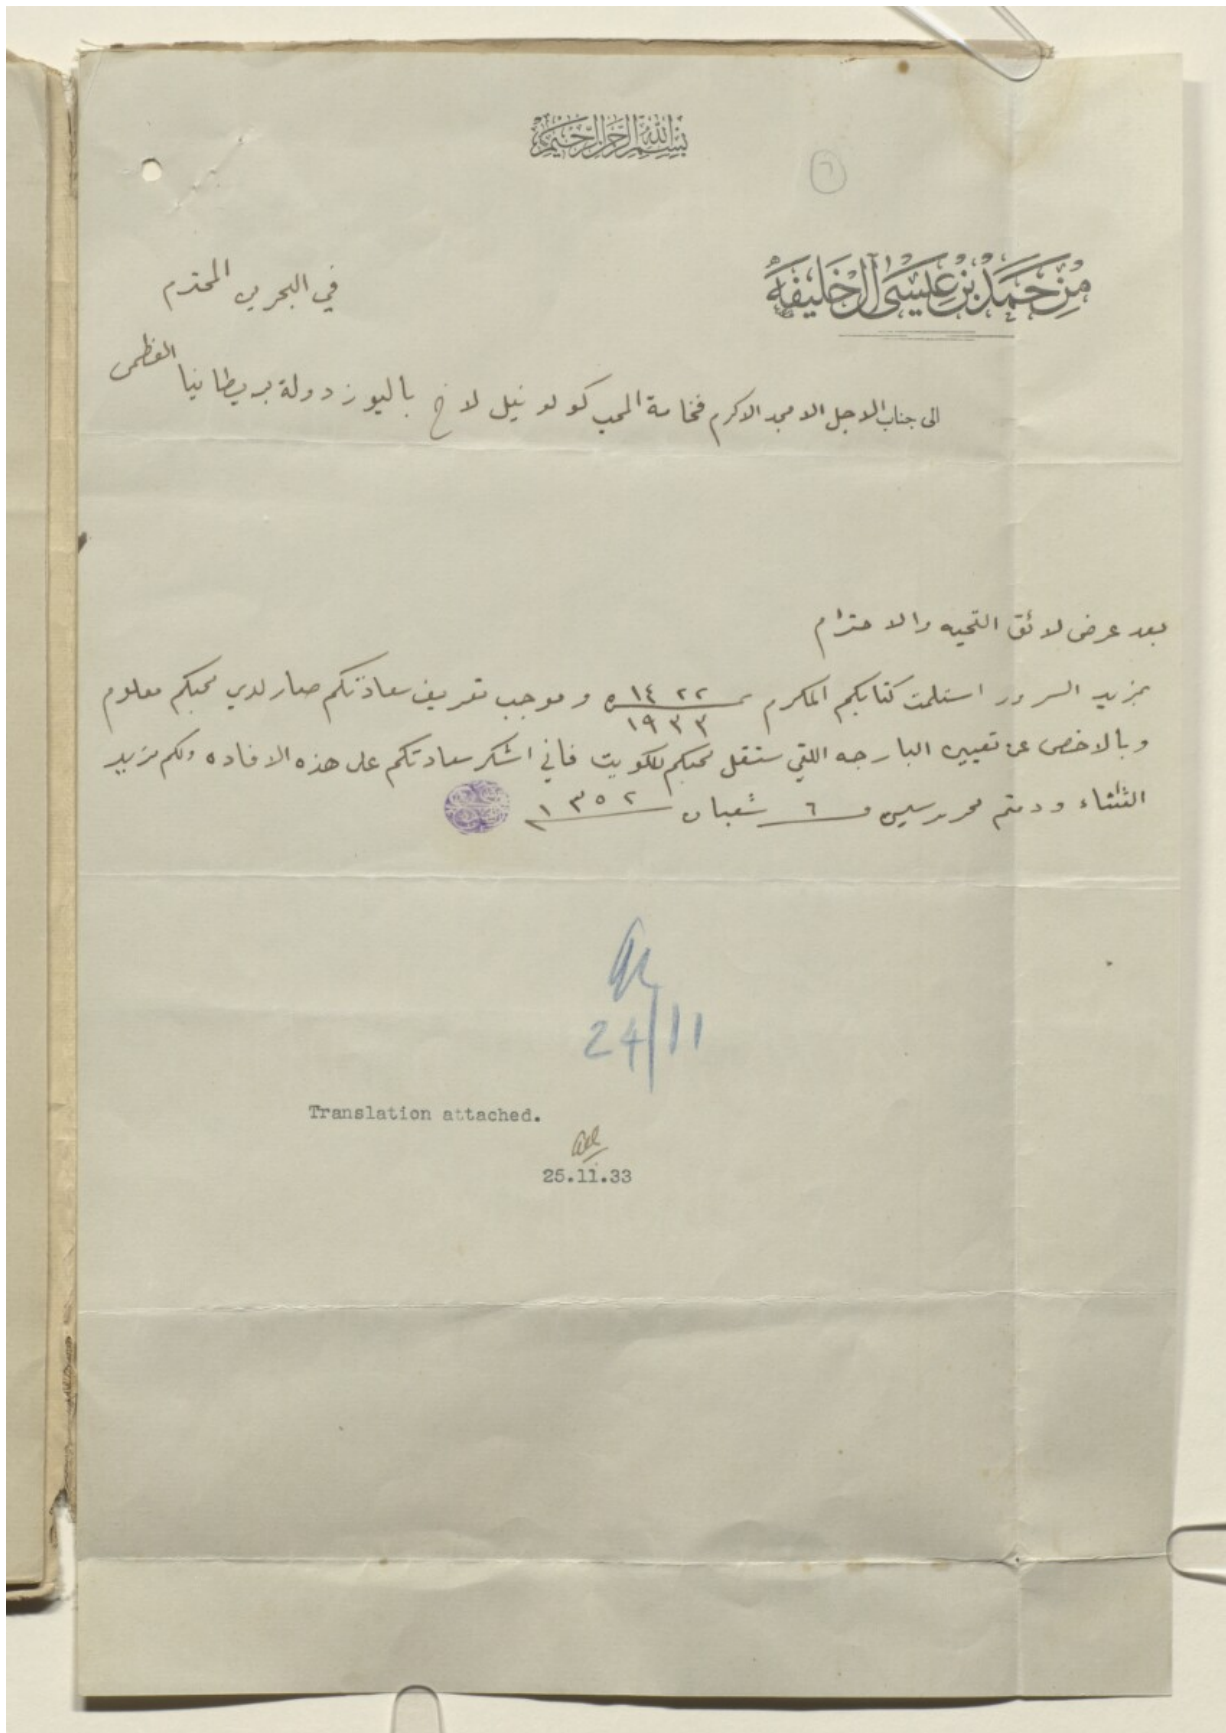 بسم الله الرحمن الرحيم
٦
من حمد بن عيسى آل خليفة
الى جناب الاجل الامجد الاكرم فخامة المحب كولونيل لاخ باليوز دولة بريطانيا العظمى
في البحرين المحترم
بعد عرض لائق التحيه والاحترام
بمزيد السرور استلمت كتابكم المكرم ١٤ ٢٢ ١٩٣٣ و موجب تعريف سعادتكم صار لدي محبكم معلوم
وبالاخص عن تعيين البارجه اللتي ستقل محبكم للكويت فاني اشكر سعادتكم على هذه الافاده ولكم مزيد
الثناء ودمتم محروسين ٦ شعبان ١٣٥٢
24/11
Translation attached.
25.11.33